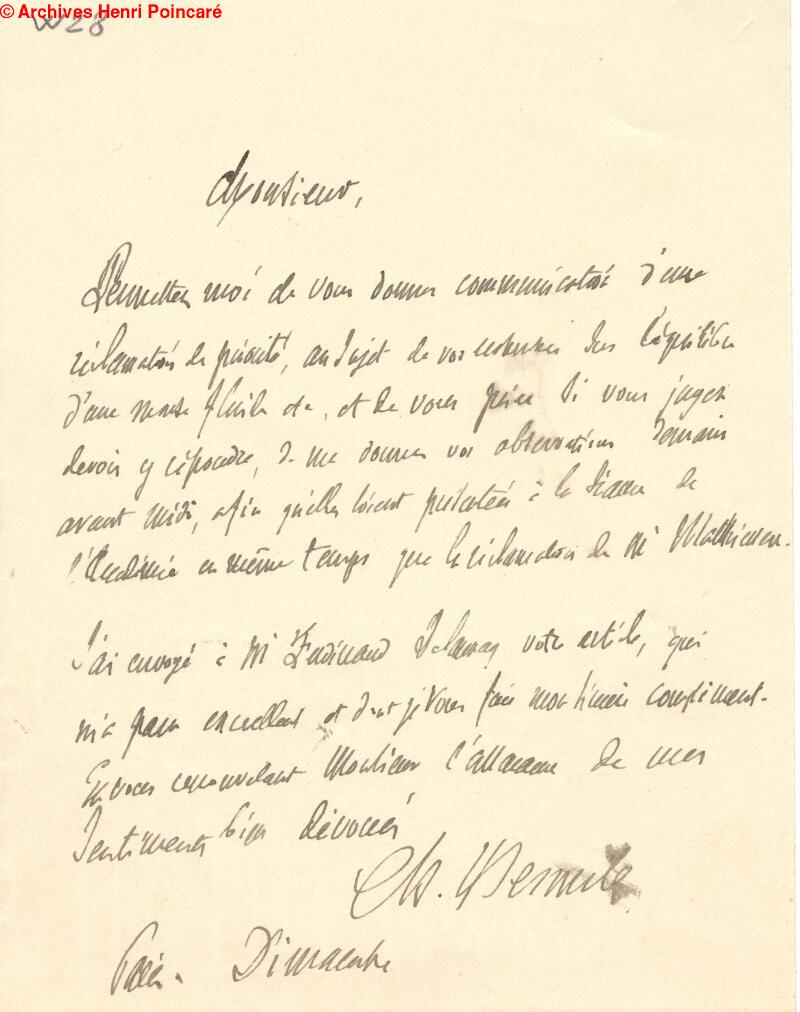 © Archives Henri Poincaré
W28
Monsieur,
Permettez moi de vous donner communication d'une
réclamation de priorité, au sujet de vos recherches sur l'équilibre
d'une masse fluide etc, et de vous prier si vous jugez
devoir y répondre, de me donner vos observations demain
avant midi, afin qu'elles soient présentées à la séance de
l'Académie en même temps que la réclamation de Mr Mathieu.
J'ai envoyé à Mr Ferdinand Delaunay votre article, qui
m'a paru excellent et dont je vous fais mon sincère compliment.
En vous renouvelant Monsieur l'assurance de mes
sentiments bien dévoués
Ch. Hermite
Paris. Dimanche